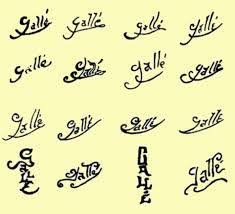 gallé gallé gallé gallé
gallé Gallé gallé gallé
Gallé gallé gallé gallé
GALLÉ Gallé GALLÉ gallé